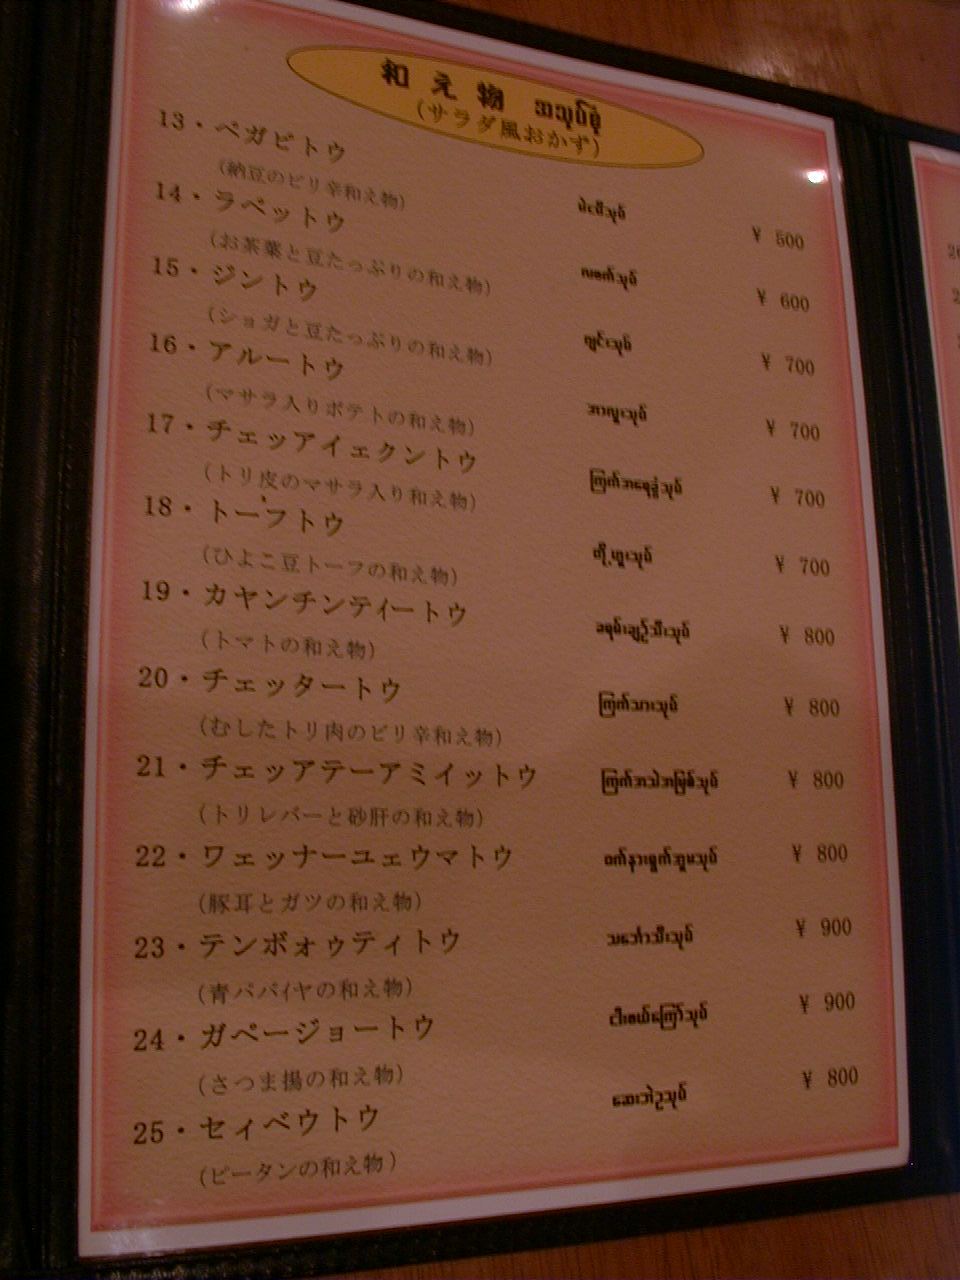 和え物 အသုပ်စုံ
(サラダ風おかず)
13・ペガピトウ ပဲငပိသုပ် ¥ 500
(納豆のピリ辛和え物)
14・ラペットウ လဖက်သုပ် ¥ 600
(お茶葉と豆たっぷりの和え物)
15・ジントウ ဂျင်းသုပ် ¥ 700
(ショガと豆たっぷりの和え物)
16・アルートウ အာလူးသုပ် ¥ 700
(マサラ入りポテトの和え物)
17・チェッアイェクントウ ကြက်အရေခွံသုပ် ¥ 700
(トリ皮のマサラ入り和え物)
18・トーフトウ တို့ဟူးသုပ် ¥ 700
(ひよこ豆トーフの和え物)
19・カヤンチンティートウ ခရမ်းချဉ်သီးသုပ် ¥ 800
(トマトの和え物)
20・チェッタートウ ကြက်သားသုပ် ¥ 800
(むしたトリ肉のピリ辛和え物)
21・チェッアテーアミイットウ ကြက်အသဲအမြစ်သုပ် ¥ 800
(トリレバーと砂肝の和え物)
22・ワェッナーユェウマトウ ဝက်နားရွက်အူမသုပ် ¥ 800
(豚耳とガツの和え物)
23・テンボォゥティトウ သင်္ဘောသီးသုပ် ¥ 900
(青パパイヤの和え物)
24・ガページョートウ ငါးဖယ်ကြော်သုပ် ¥ 900
(さつま揚の和え物)
25・セィベウトウ ဆေးဘဲဥသုပ် ¥ 800
(ピータンの和え物)